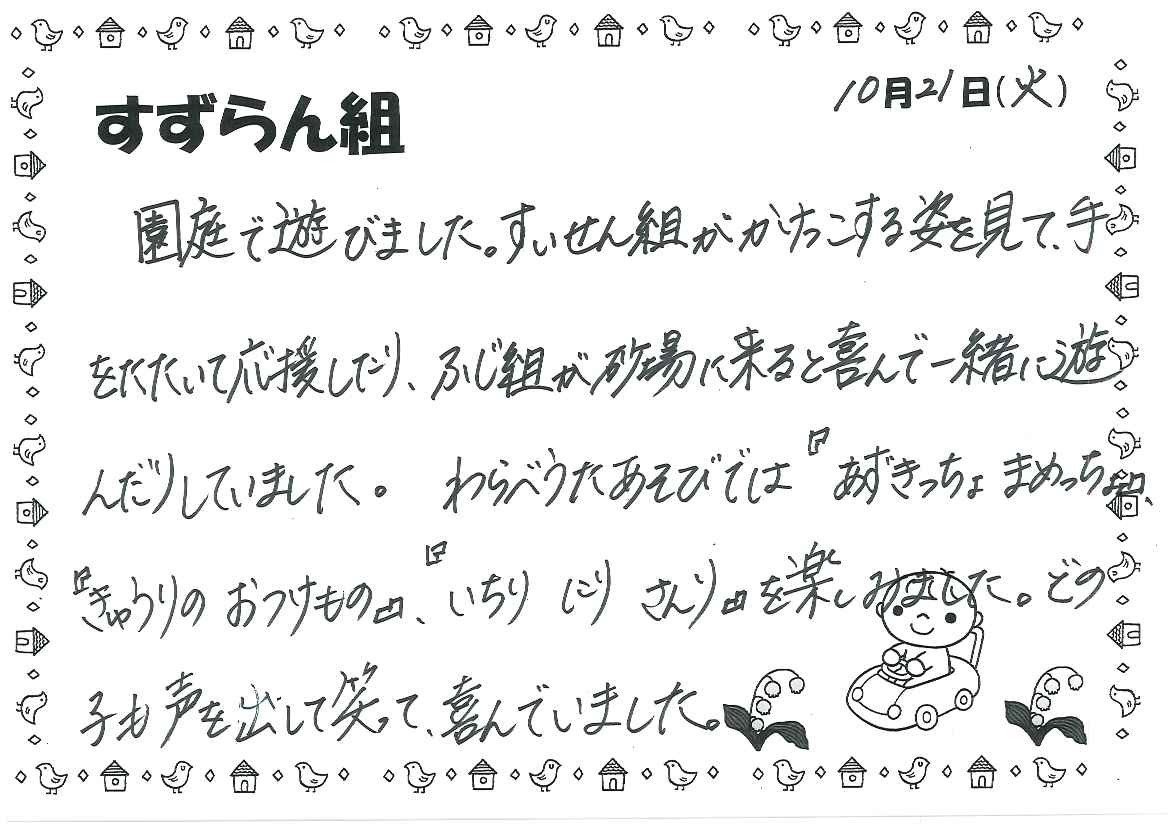 すずらん組
10月21日(火)
園庭で遊びました。すいせん組がかけっこする姿を見て、手
をたたいて応援したり、ふじ組が砂場に来ると喜んで一緒に遊
んだりしていました。 わらべうたあそびでは『あずきっちょ まめっちょ』、
『きゅうりの おつけもの』、『いちり にり さんり』を楽しみました。どの
子も声を出して笑って、喜んでいました。